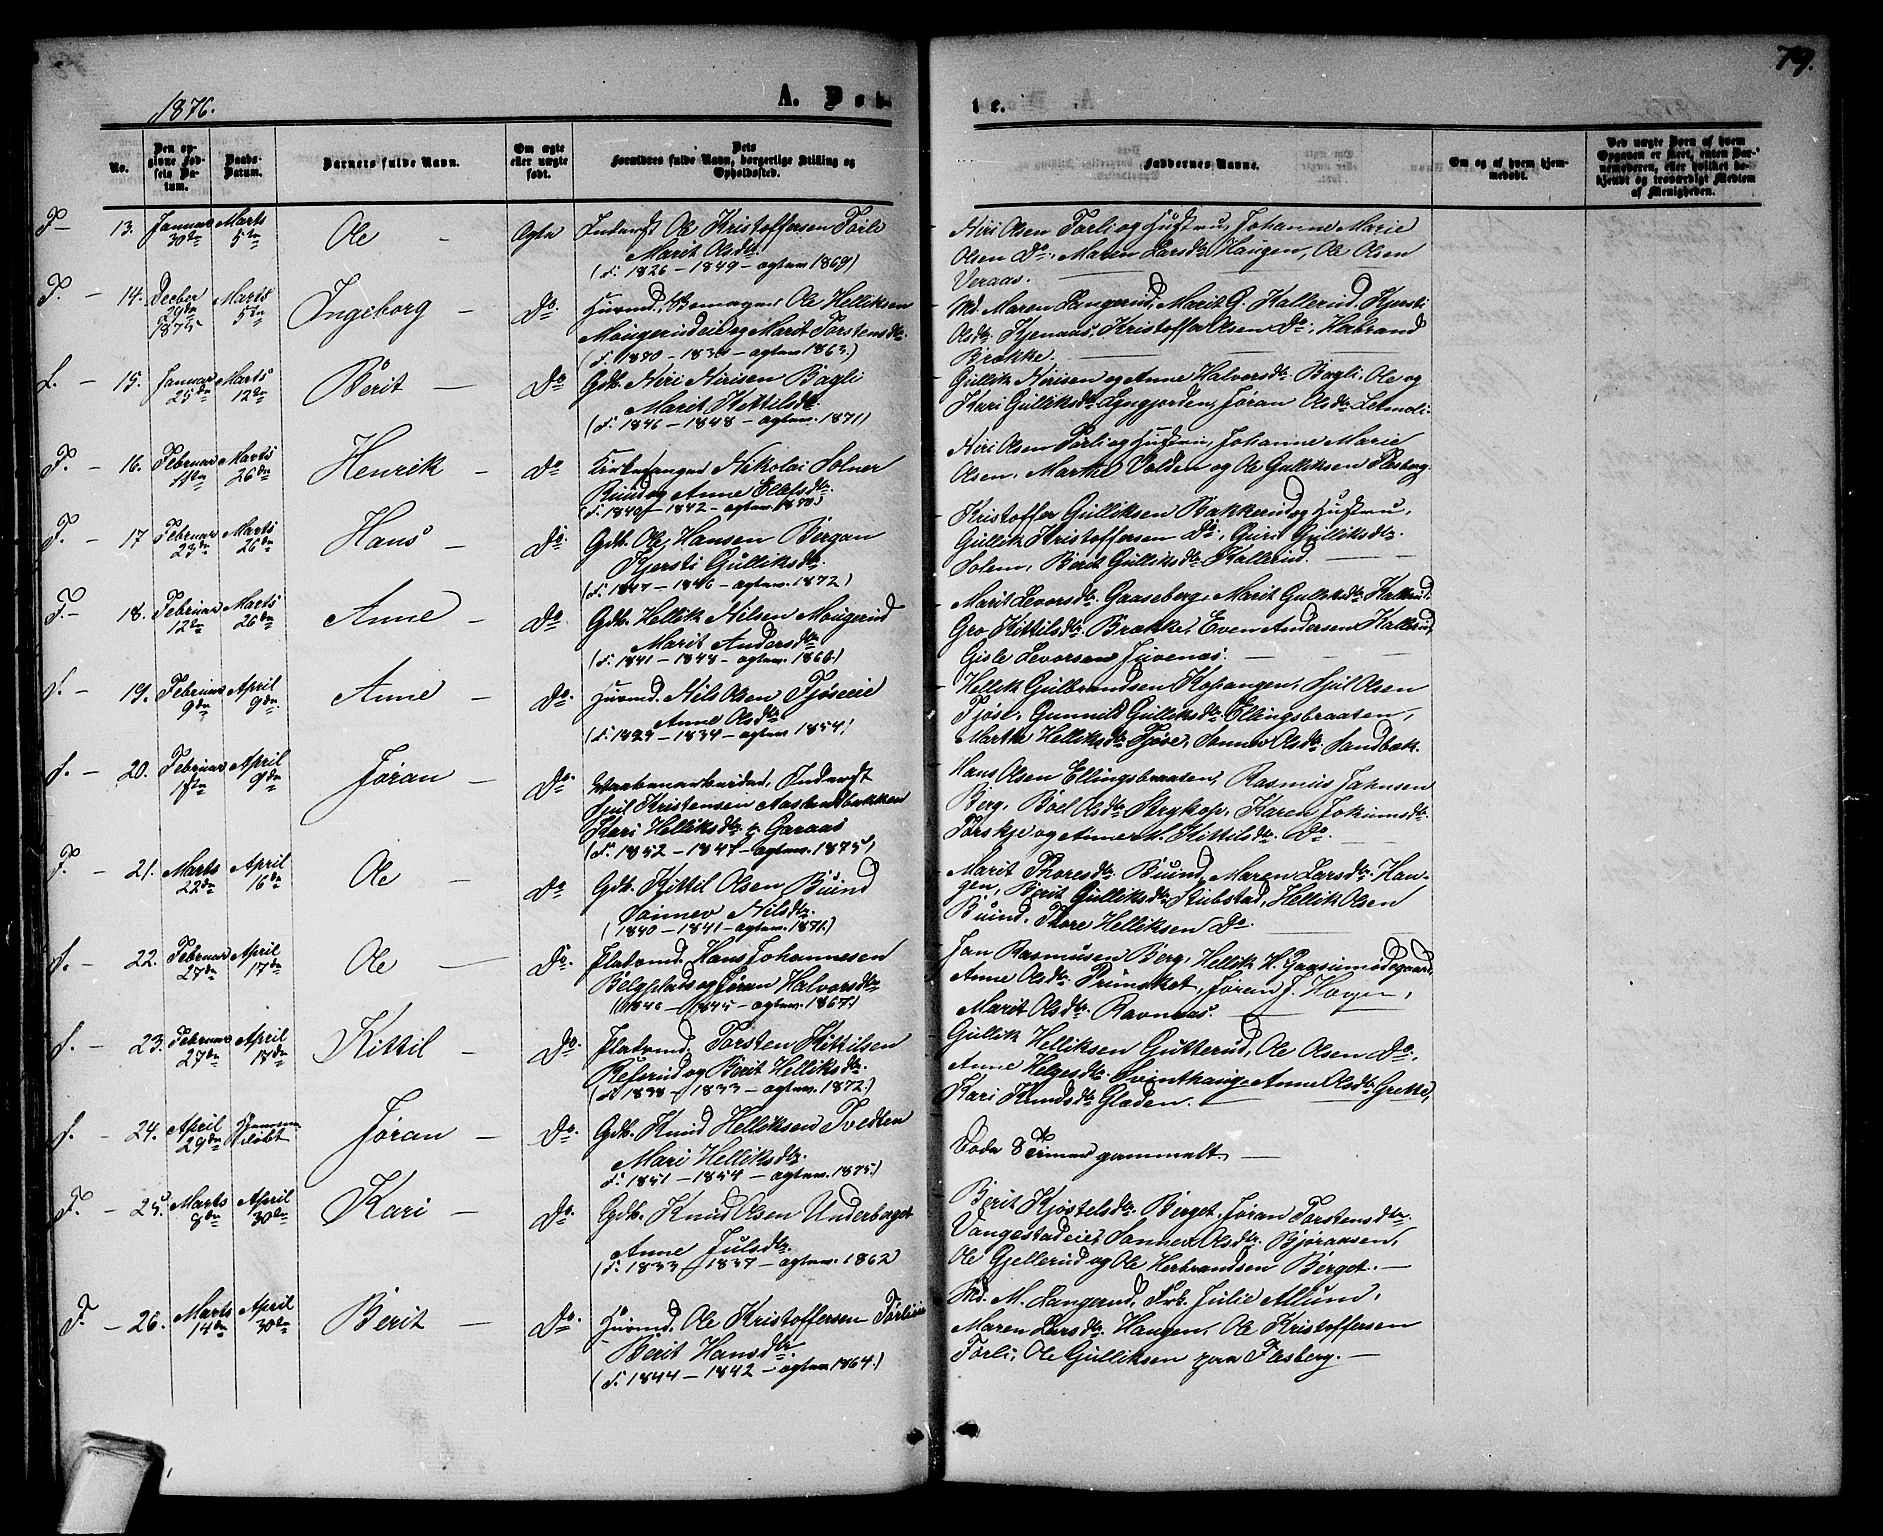 79.
1876.
A. Døb-
te.
No.
Den op-
givne Fød-
sels Da-
tum.
Daabs-
Datum.
Barnets fulde Navn.
Om ægte
eller uægte
født.
Dets
Forældres fulde Navn, borgerlige Stilling og
Opholdssted.
Faddernes Navne.
Om og af hvem hjem-
medøbt.
Ved uægte Børn af hvem
Opgaven er skeet, enten Bar-
nemoderen, eller hvilket be-
kjendt og troværdigt Medlem
af Menigheden.
F. - 13. Januar 30te Marts 5te Ole - Ægte Inderst Ole Kristoffersen Tørli
Marit Olsdtr.
(f. 1826 - 1849 - ægtev 1869)
Niri Olsen Tørli og Hustru, Johanne Marie
Olsen Do. Maren Larsdtr Haugen, Ole Olsen
Veraas.
F. - 14. Decber 29de 1875 Marts 5te Ingeborg - Do Huusmd. Ole Helliksen
Maagerudeie og Marit Torstensdtr.
(f. 1840 - 1834 - ægtev 1863.)
Md. Maren Langerud, Marit G. Kallerud, Kjersti
Olsdtr. Kjenaas, Kristoffer Olsen Do., Herbrand
Brække.
f. - 15. Januar 25de Marts 12te Berit - Do Gdb. Niri Nirisen Bagli
Marit Kittilsdtr.
(f. 1846 - 1848 - ægtev. 1871)
Gullik Nirisen og Anne Halvorsdtr. Bagli, Ole og
Kari Gulliksdtr. Lyngjorden, Jøran Olsdtr Letmoli.
F. - 16. Februar 11te Marts 26de Henrik - Do Kirkesanger Nikolai Solner
Ruud og Anne Olafsdtr.
(f. 1840 - 1842 - ægtev. 1870)
Niri Olsen Tørli og Hustru, Johanne Marie
Olsen, Marthe Volden og Ole Gulliksen Flesberg.
F. - 17 Februar 23de Marts 26de Hans - Do. Gdb. Ole Hansen Bergan
Kjersti Gulliksdtr.
(f. 1847 - 1846 - ægtev. 1872)
Kristoffer Gulliksen Bakkerud og Hustru,
Gullik Kristoffersen Do., Guri Gulliksdtr.
Solem, Berit Gulliksdtr. Kallerud.
F. - 18. Februar 12te Marts 26de Anne - Do. Gdb. Hellik Nilsen Maagerud
Marit Andersdtr
(f. 1841 - 1844 - ægtev. 1866.)
Marit Levorsdtr. Gaaseberg, Marit Gulliksdtr. Kallerud,
Gro Kittilsdtr. Brække, Even Andersen Kallerud,
Gisle Levorsen Juvenæs.
f. - 19. Februar 9de April 9de. Anne - Do. Huusmd. Nils Olsen Tjøseeie
Anne Olsdtr.
(f. 1829 - 1834 - ægtev 1854)
Hellik Gulbrandsen Kopangen, Sjul Olsen
Tjøse, Gunnild Gulliksdtr. Ellingsbraaten,
Marthe Helliksdtr. Tjøse, Sønnev Olsdtr. Sandbæk.
f. - 20. Februar 1ste April 9de Jøran - Do. Vaabenarbeider, Inderst
Sjul Kristensen Aaslandbakken
Kari Helliksdtr. Garaas
(f. 1852 - 1847 - ægtev. 1875)
Hans Olsen Ellingsbraaten, Rasmus Jahnsen
Berg, Boel Olsdtr. Strykop, Karen Johannsdtr.
Torskje og Anne M. Kittilsdtr. Do.
F. - 21. Marts 22de April 16de Ole - Do Gdb. Kittil Olsen Buind
Sønnev Nilsdtr.
(1840 - 1841 - ægtev. 1871.)
Marit Thoresdtr. Buind, Maren Larsdtr. Hau-
gen, Berit Gulliksdtr. Stubstad, Hellik Olsen
Buind, Thore Helliksen Do.
f. - 22. Februar 27de April 17de Ole - Do. Pladsmd. Hans Johannesen
Belgplads og Jøran Halvorsdtr
(1840 - 1845 - ægtev. 1867)
Jan Rasmusen Berg, Hellik H. Gaasumødegaard,
Anne Olsdtr. Prinsket, Jøran J. Hagen,
Marit Olsdtr. Ravnaas.
f. - 23. Februar 27de April 17de Kittil - Do. Pladsmd. Torsten Kittilsen
Refsrud og Berit Helliksdtr.
(f. 1838 - 1833 - ægtev. 1872.)
Gullik Helliksen Gutterud, Ole Olsen Do.,
Anne Helgesdtr. Svinthaug, Anne Olsdtr. Grette,
Kari Knudsdtr. Gladen.
f. - 24. April 29de Hjemmedøbt Jøran - Do. Gdb. Knud Helliksen Tvedten
Mari Helliksdtr.
f. 1851 - 1854 - ægtev. 1875.)
Døde 8 Timer gammelt.
F. - 25. Marts 8de April 30te Kari - Do. Gdb. Knud Olsen Underberget
Anne Julsdtr.
(f. 1833 - 1837 - ægtev. 1862)
Berit Kjøstelsdtr. Berget, Jøran Torstensdtr.
Vangestadeie, Sønnev Olsdtr. Bjøraasen,
Ole Gjellerud og Ole Herbrandsen Berget.
F. - 26. Marts 14de April 30te Berit - Do. Huusmd. Ole Kristoffersen Tørlieie
Berit Hansdtr.
(f. 1844 - 1842 - ægtev 1864.)
Md. M. Langerud, Frk. Julie Aslund,
Maren Larsdtr. Haugen, Ole Kristoffersen
Tørli, Ole Gulliksen paa Flesberg.